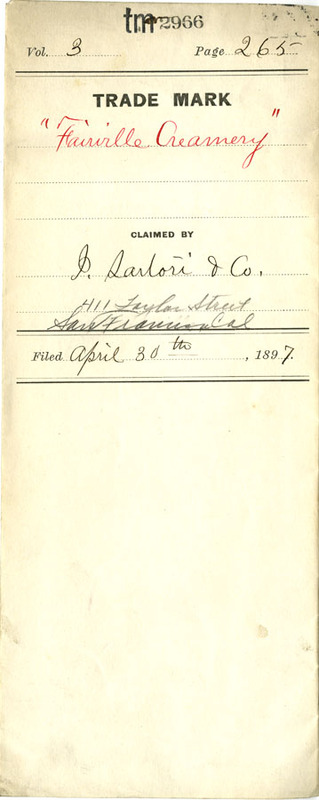 tm 2966
Vol. 3 Page 265
TRADE MARK
"Fairville Creamery"
CLAIMED BY
P. Sartori & Co.
411 Taylor Street
San Francisco Cal
Filed April 30th, 1897.